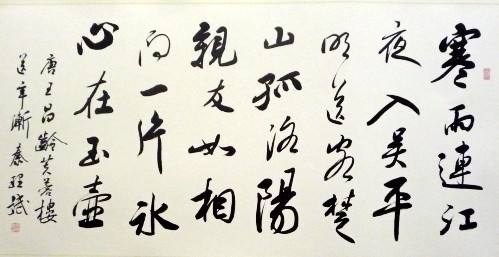 寒雨連江
夜入吴平
明送客楚
山孤洛陽
親友如相
问一片冰
心在玉壺
唐王昌齡芙蓉樓
送辛漸 秦